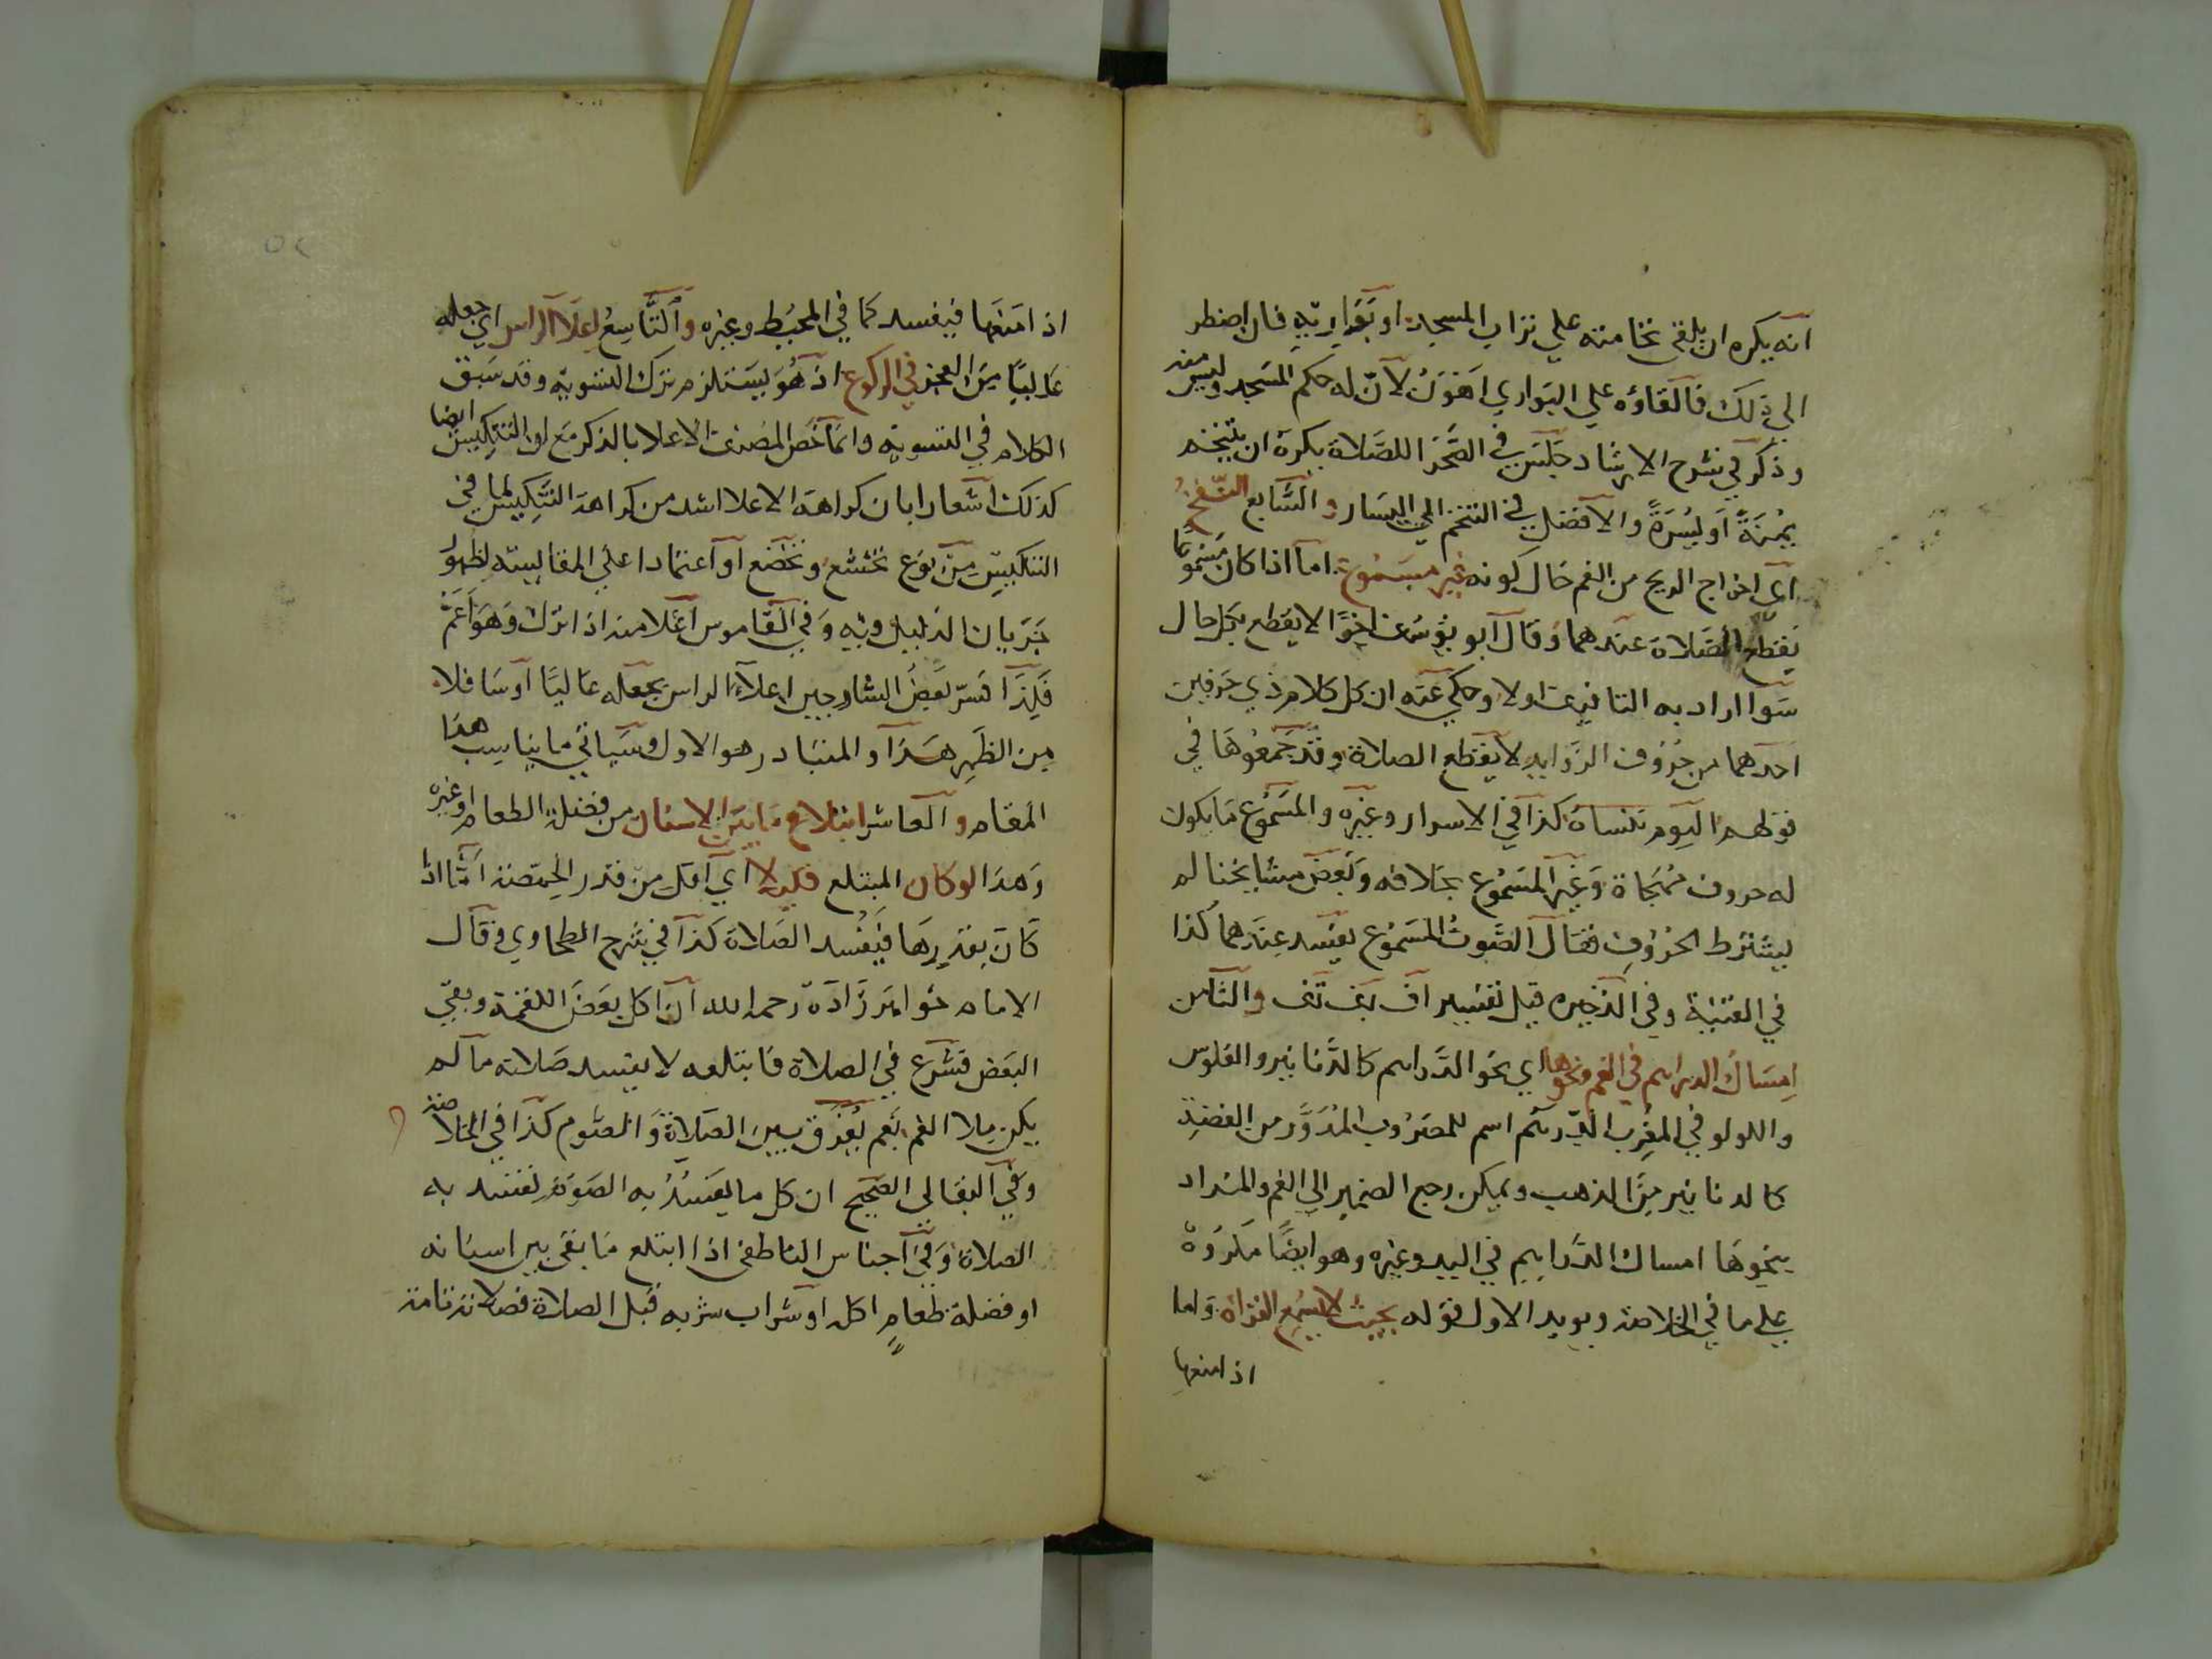 انه يكره ان يلقى نخامته علي تراب المسجد او بواريه فان اضطر
الي ذلك فالقاؤه علي البواري اهون لان له حكم المسجد وليس منه
وذكر في شرح الارشاد جلس في الصحرا للصلاة يكره ان يتنخم
يمنة او يسرة والافضل في التنخم الي اليسار والسابع النفخ
اى اخراج الريح من الفم حال كونه غير مسموع اما اذا كان مسموعا
يقطع الصلاة عندهما وقال ابو يوسف اخرا لا يقطع بكل حال
سوا اراد به التافيف اولا وحكي عنه ان كل كلام ذي حرفين
احدهما من حروف الزوايد لا يقطع الصلاة وقد جمعوها في
قولهم اليوم تنساه كذا في الاسرار وغيره والمسموع ما يكون
له حروف مهجاة وغير المسموع بخلافه وبعض مشايخنا لم
يشترط الحروف فقال الصوت المسموع يفسد عندهما كذا
في القنية وفي الذخيره قيل تفسير اف تف والثامن
امساك الدراهم في الفم ونحوها اي نحو الدراهم كالدنانير والفلوس
واللولو في المغرب الدرهم اسم للمضروب المدور من الفضة
كالدنانير من الذهب ويمكن رجع الضمير الي الفم والمراد
بنحوها امساك الدراهم في اليد وغيره وهو ايضا مكروه
علي ما في الخلاصة ويويد الاول قوله بحيث لا يمنع القراة واما
اذا منعها
اذا منعها فيفسد كما في المحيط وغيره والتاسع اعلا الراس اي جعله
عاليا من العجز في الركوع اذ هو يستلزم ترك التسوية وقد سبق
الكلام في التسوية وانما خص المصنف الاعلا بالذكر مع ان التنكيس ايضا
كذلك اشعارا بان كراهة الاعلا اشد من كراهة التنكيس لما في
التنكيس من نوع تخشع وتخضع او اعتمادا علي المقايسة لظهور
جريان الدليل فيه وفي القاموس اعلا منه اذا نزل وهو اعم
فلذا فسر بعض الشارحين اعلاء الراس بجعله عاليا او سافلا
من الظهر هذا والمتبادر هو الاول وسياتي ما يناسب هذا
المقام والعاشر ابتلاع ما بين الاسنان من فضلة الطعام او غيره
وهذا لو كان المبتلع قليلا اي اقل من قدر الحمصة اما اذا
كان بقدرها فيفسد الصلاة كذا في شرح الطحاوي وقال
الامام خواهر زاده رحمه الله ان اكل بعض اللقمة وبقي
البعض فشرع في الصلاة فابتلعه لا يفسد صلاته ما لم
يكن ملا الفم نعم يفرق بين الصلاة والصوم كذا في الخلاصة
وفي البقالى الصحيح ان كل ما يفسد به الصوم تفسد به
الصلاة وفي اجناس الناطفى اذا ابتلع ما بقى بين اسنانه
او فضلة طعام اكل او شراب شربه قبل الصلاة فصلاته تامة